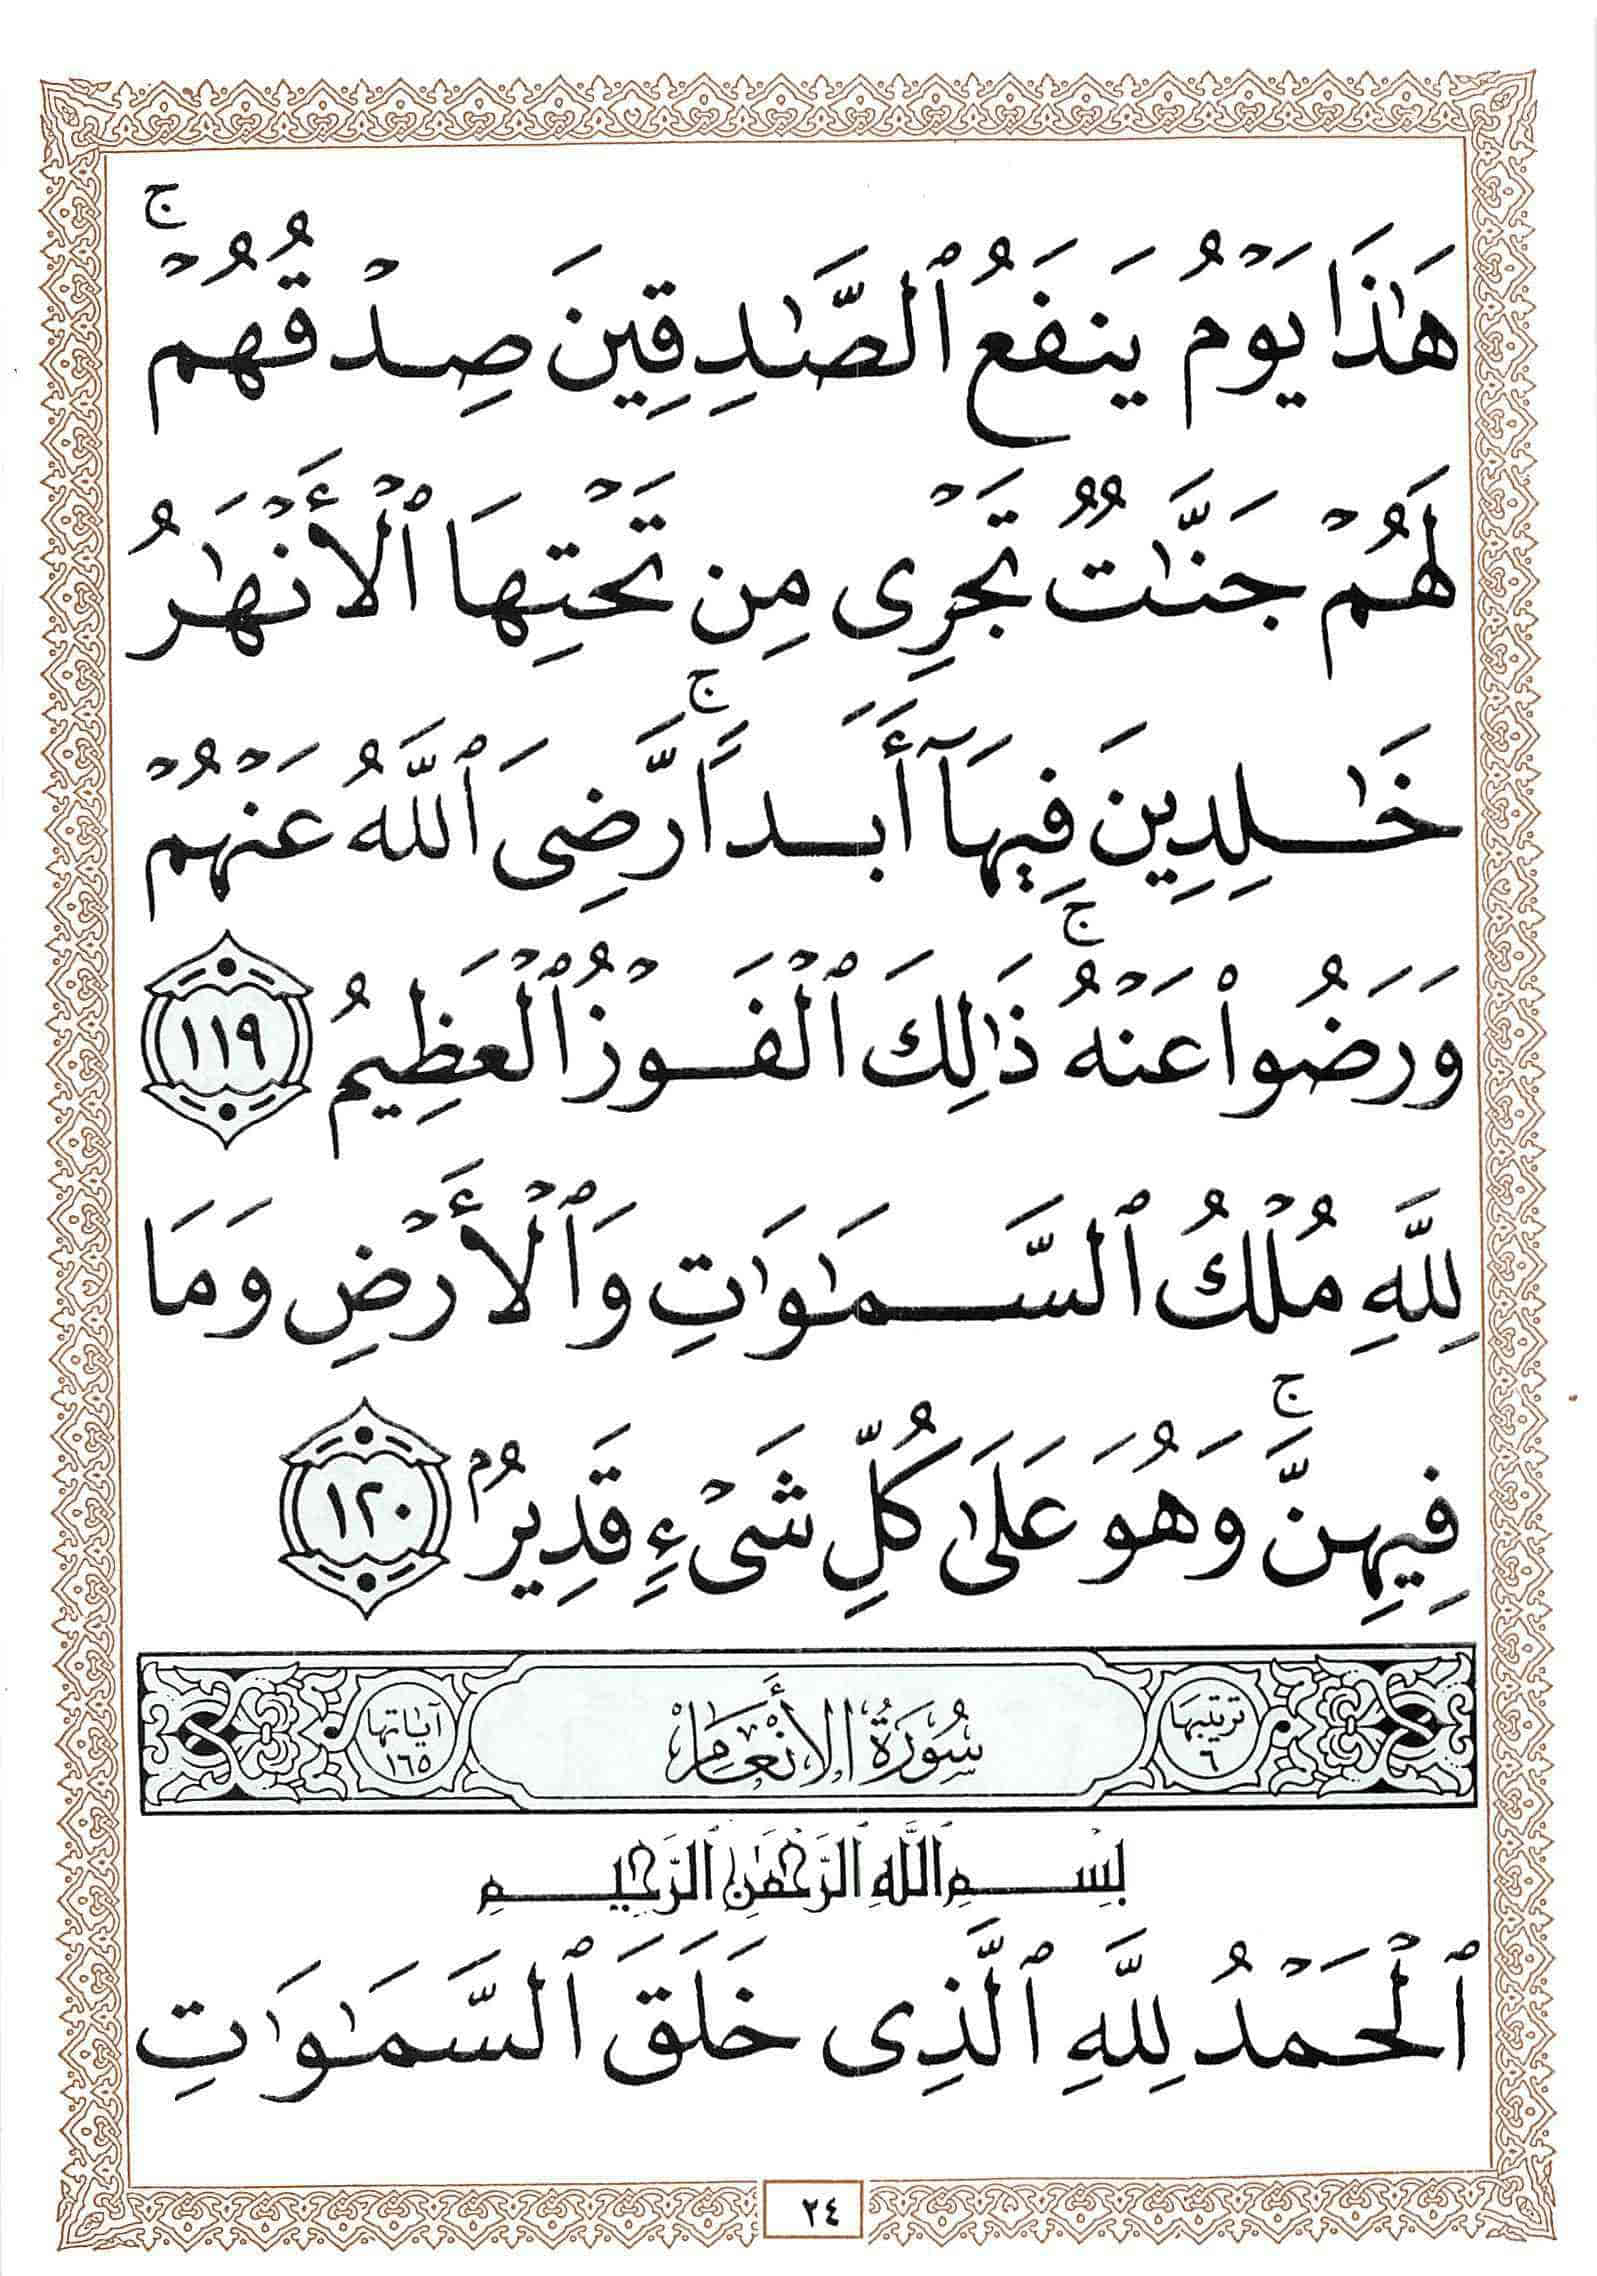 هَٰذَا يَوْمُ يَنفَعُ ٱلصَّٰدِقِينَ صِدْقُهُمْ ۚ
لَهُمْ جَنَّٰتٌ تَجْرِى مِن تَحْتِهَا ٱلْأَنْهَٰرُ
خَٰلِدِينَ فِيهَآ أَبَدًا ۚ رَّضِىَ ٱللَّهُ عَنْهُمْ
وَرَضُوا۟ عَنْهُ ۚ ذَٰلِكَ ٱلْفَوْزُ ٱلْعَظِيمُ ١١٩
لِلَّهِ مُلْكُ ٱلسَّمَٰوَٰتِ وَٱلْأَرْضِ وَمَا
فِيهِنَّ ۚ وَهُوَ عَلَىٰ كُلِّ شَىْءٍ قَدِيرٌۢ ١٢٠
ترتيبها ٦ سُورَةُ الأَنْعَامِ آياتها ١٦٥
بِسْمِ ٱللَّهِ ٱلرَّحْمَٰنِ ٱلرَّحِيمِ
ٱلْحَمْدُ لِلَّهِ ٱلَّذِى خَلَقَ ٱلسَّمَٰوَٰتِ
٢٤